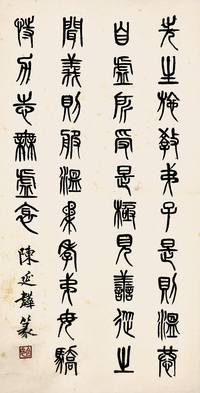 先生施教弟子是則溫恭
自虛所受是極見善從之
聞義則服溫柔孝弟毋驕
恃力志無虛邪
陳延韡篆